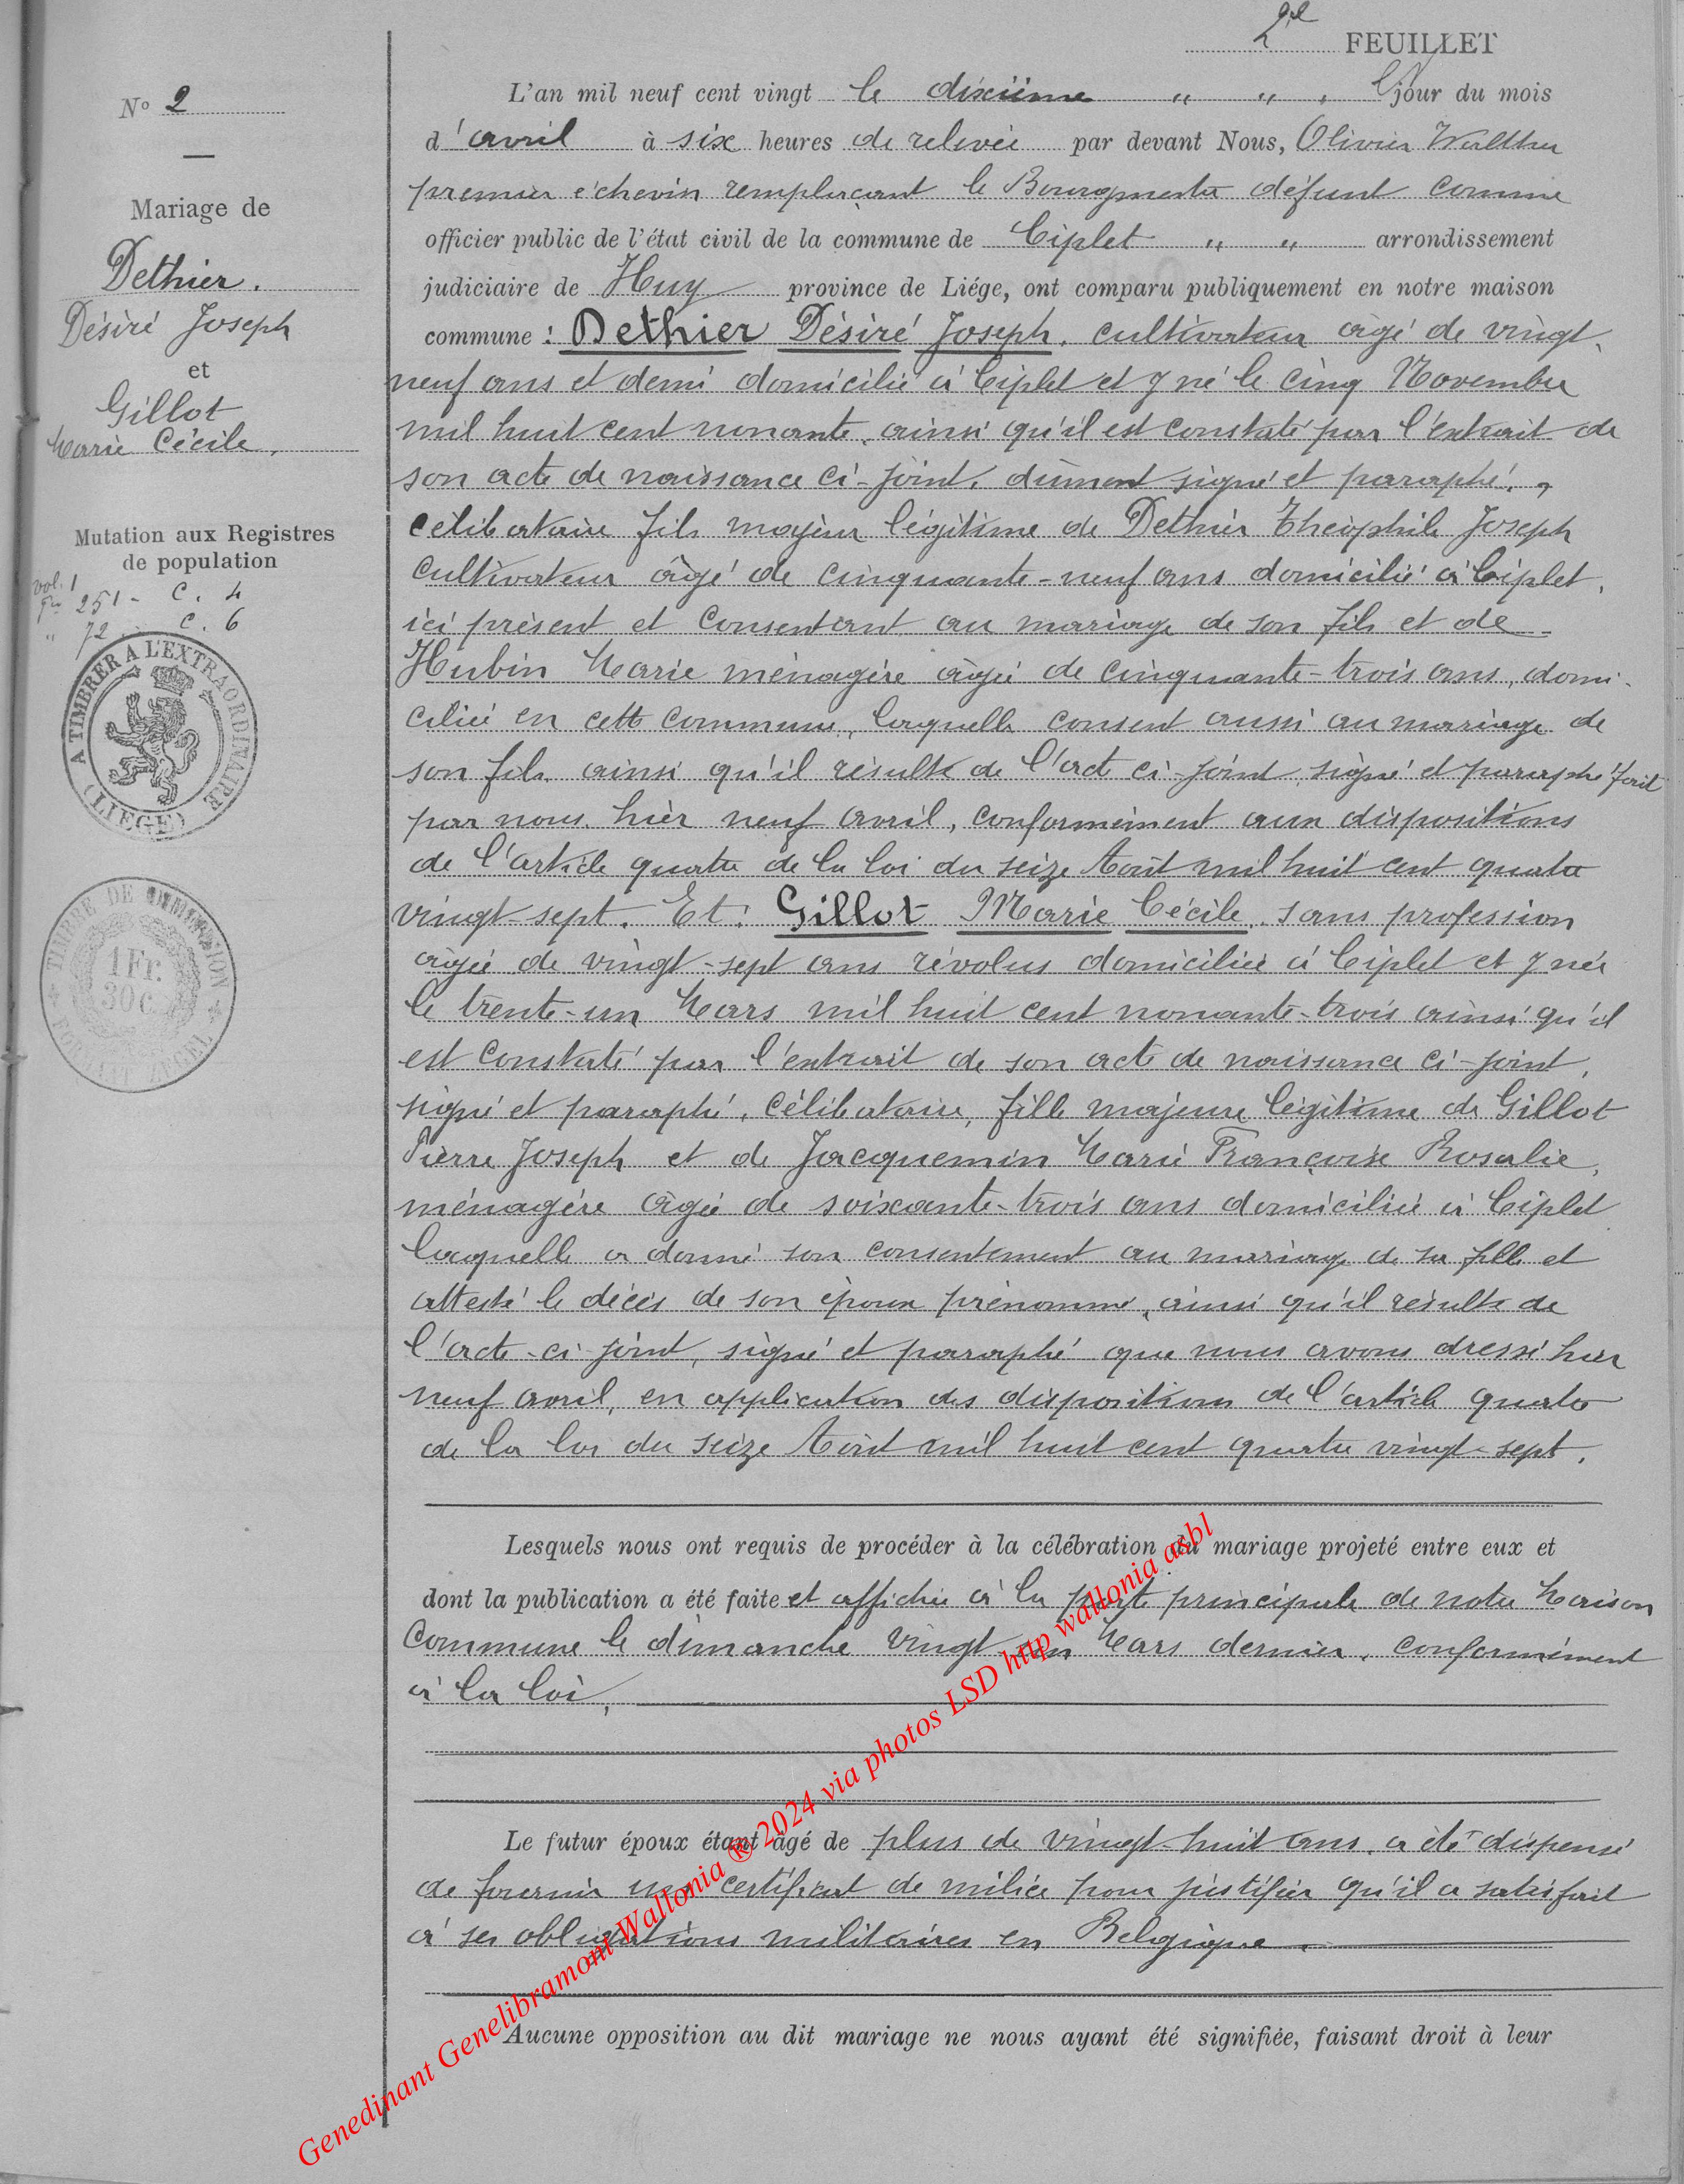 2e FEUILLET
N° 2
Mariage de
Dethier.
Désiré Joseph
et
Gillot
Marie Cécile.
Mutation aux Registres
de population
vol. 1
251 - C. 4
" 72 - C. 6
A TIMBRER A L'EXTRAORDINAIRE
(LIEGE)
TIMBRE DE DIMENSION
1 Fr.
30 c.
FORMAAT ZEGEL
L'an mil neuf cent vingt le dixième " " " jour du mois
d'avril à six heures de relevée par devant Nous, Olivier Walther
premier échevin remplaçant le Bourgmestre défunt comme
officier public de l'état civil de la commune de Ciplet " " arrondissement
judiciaire de Huy province de Liége, ont comparu publiquement en notre maison
commune : Dethier Désiré Joseph, cultivateur âgé de vingt-
neuf ans et demi domicilié à Ciplet et y né le cinq Novembre
mil huit cent nonante, ainsi qu'il est constaté par l'extrait de
son acte de naissance ci-joint, dûment signé et paraphé,
célibataire fils majeur légitime de Dethier Théophile Joseph
cultivateur âgé de cinquante-neuf ans domicilié à Ciplet,
ici présent et consentant au mariage de son fils et de
Hubin Marie ménagère âgée de cinquante-trois ans, domi-
ciliée en cette commune, laquelle consent aussi au mariage de
son fils, ainsi qu'il résulte de l'acte ci-joint signé et paraphé fait
par nous, hier neuf avril, conformément aux dispositions
de l'article quatre de la loi du seize Août mil huit cent quatre
vingt-sept. Et : Gillot Marie Cécile, sans profession
âgée de vingt-sept ans révolus domiciliée à Ciplet et y née
le trente-un Mars mil huit cent nonante-trois ainsi qu'il
est constaté par l'extrait de son acte de naissance ci-joint,
signé et paraphé, célibataire, fille majeure légitime de Gillot
Pierre Joseph et de Jacquemin Marie Françoise Rosalie,
ménagère âgée de soixante-trois ans domiciliée à Ciplet
laquelle a donné son consentement au mariage de sa fille et
attesté le décès de son époux prénommé, ainsi qu'il résulte de
l'acte-ci-joint, signé et paraphé que nous avons dressé hier
neuf avril, en application des dispositions de l'article quatre
de la loi du seize Août mil huit cent quatre vingt-sept.
Lesquels nous ont requis de procéder à la célébration du mariage projeté entre eux et
dont la publication a été faite et affichée à la porte principale de notre Maison
Commune le dimanche vingt un Mars dernier, conformément
à la loi,
Le futur époux étant âgé de plus de vingt-huit ans, a été dispensé
de fournir un certificat de milice pour justifier qu'il a satisfait
à ses obligations militaires en Belgique.
Aucune opposition au dit mariage ne nous ayant été signifiée, faisant droit à leur
Genedinant Genelibramont Wallonia ® 2024 via photos LSD http wallonia asbl